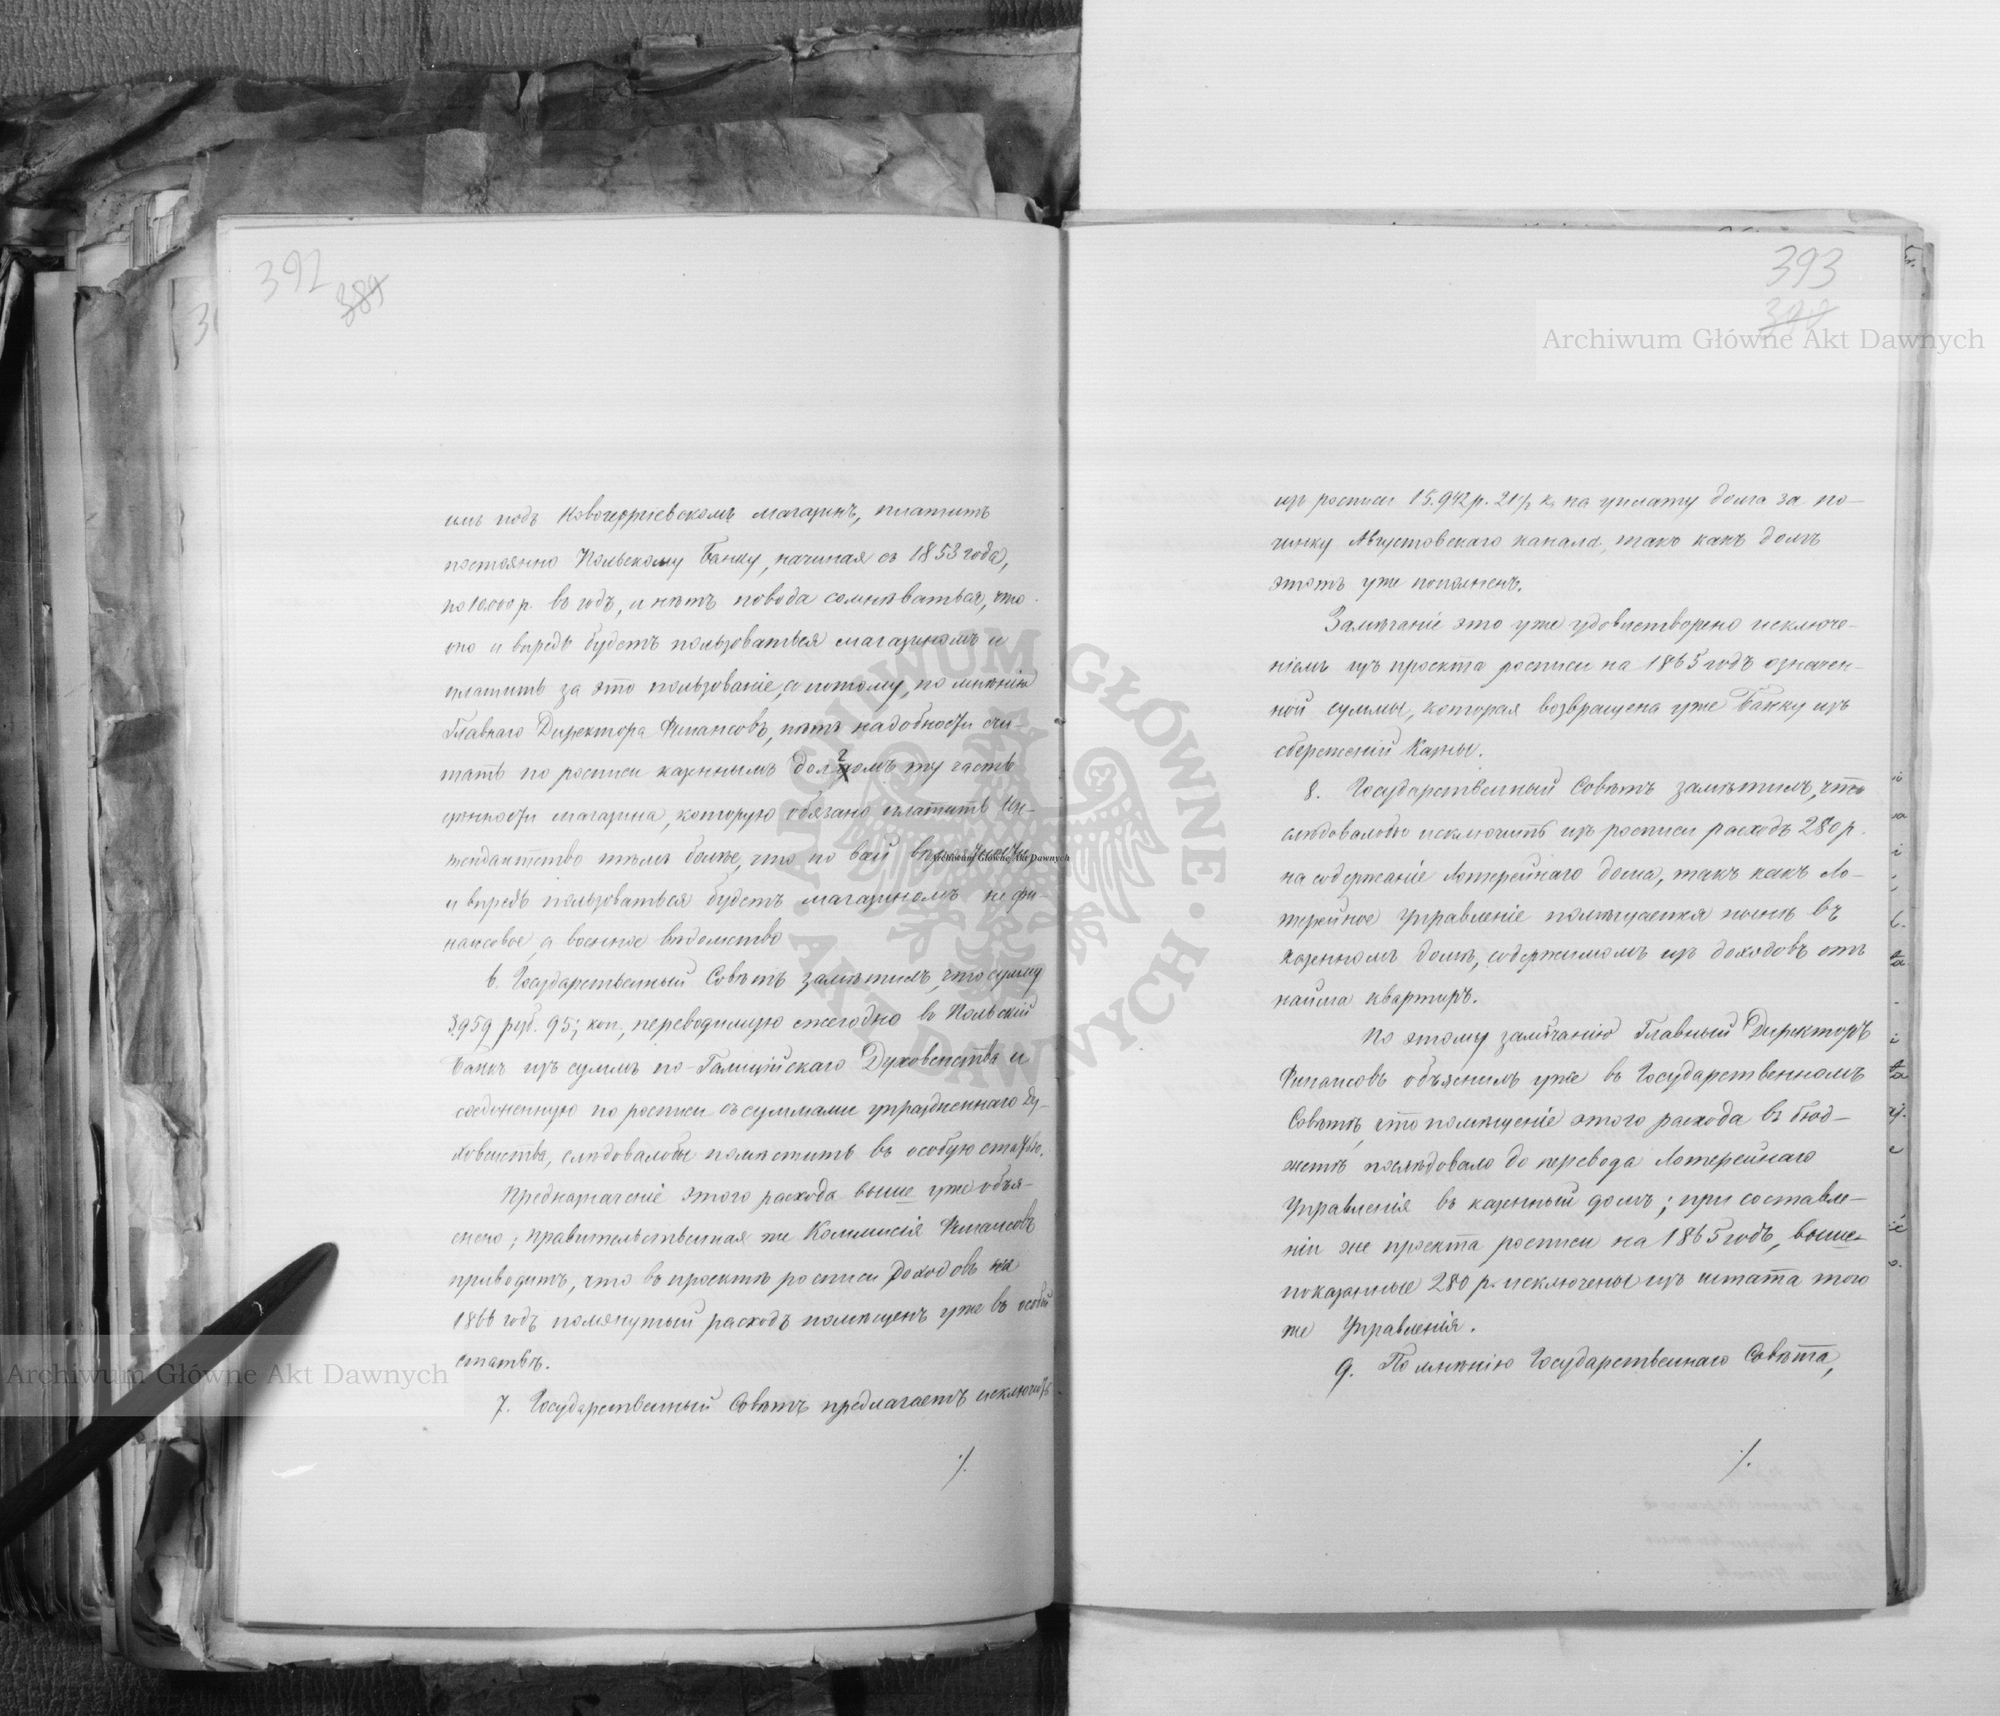 392
389
имъ подъ Новогеоргіевскомъ магазинъ, платитъ
постоянно Польскому Банку, начиная съ 1853 года,
по 10.000 р. въ годъ, и нѣтъ повода сомнѣваться, что
оно и впредь будетъ пользоваться магазиномъ и
платить за это пользованіе, а потому, по мнѣнію
Главнаго Директора Финансовъ, нѣтъ надобности счи
тать по росписи казеннымъ долгомъ ту часть
цѣнности магазина, которую обязано платить Ин-
тендантство тѣмъ болѣе, что по всей вѣроятности
и впредь пользоваться будетъ магазиномъ не фи-
нансовое, а военное вѣдомство
6. Государственный Совѣтъ замѣтилъ, что сумму
3959 руб. 95½ коп., переводимую ежегодно въ Польскій
Банкъ изъ суммъ по-Галиційскаго Духовенства и
соединенную по росписи съ суммами упраздненнаго Ду-
ховенства, слѣдовалобы помѣстить въ особую статью.
Предназначеніе этого расхода выше уже объя-
снено; правительственная же Коммисія Финансовъ
приводитъ, что въ проектѣ росписи доходовъ на
1866 годъ помянутый расходъ помѣщенъ уже въ особой
статьѣ.
7. Государственный Совѣтъ предлагаетъ исключить
./.
393
изъ росписи 15.942 р. 21½ к. на уплату долга за по-
чинку Августовскаго канала, такъ какъ долгъ
этотъ уже пополненъ.
Замѣчаніе это уже удовлетворено исключе-
ніемъ изъ проекта росписи на 1865 годъ означен-
ной суммы, которая возвращена уже Банку изъ
сбереженій Казны.
8. Государственный Совѣтъ замѣтилъ, что
слѣдовалобы исключить изъ росписи расходъ 280 р.
на содержаніе Лотерейнаго дома, такъ какъ Ло-
терейное Управленіе помѣщается нынѣ въ
казенномъ домѣ, содержимомъ изъ доходовъ отъ
найма квартиръ.
По этому замѣчанію Главный Директоръ
Финансовъ объяснилъ уже въ Государственномъ
Совѣтѣ, что помѣщеніе этого расхода въ бюд-
жетѣ послѣдовало до перевода Лотерейнаго
Управленія въ казенный домъ; при составле-
ніи же проекта росписи на 1865 годъ, выше-
показанные 280 р. исключены изъ штата того
же Управленія.
9. По мнѣнію Государственнаго Совѣта,
./.
Archiwum Główne Akt Dawnych
Archiwum Główne Akt Dawnych
Archiwum Główne Akt Dawnych
ARCHIWUM GŁÓWNE AKT DAWNYCH